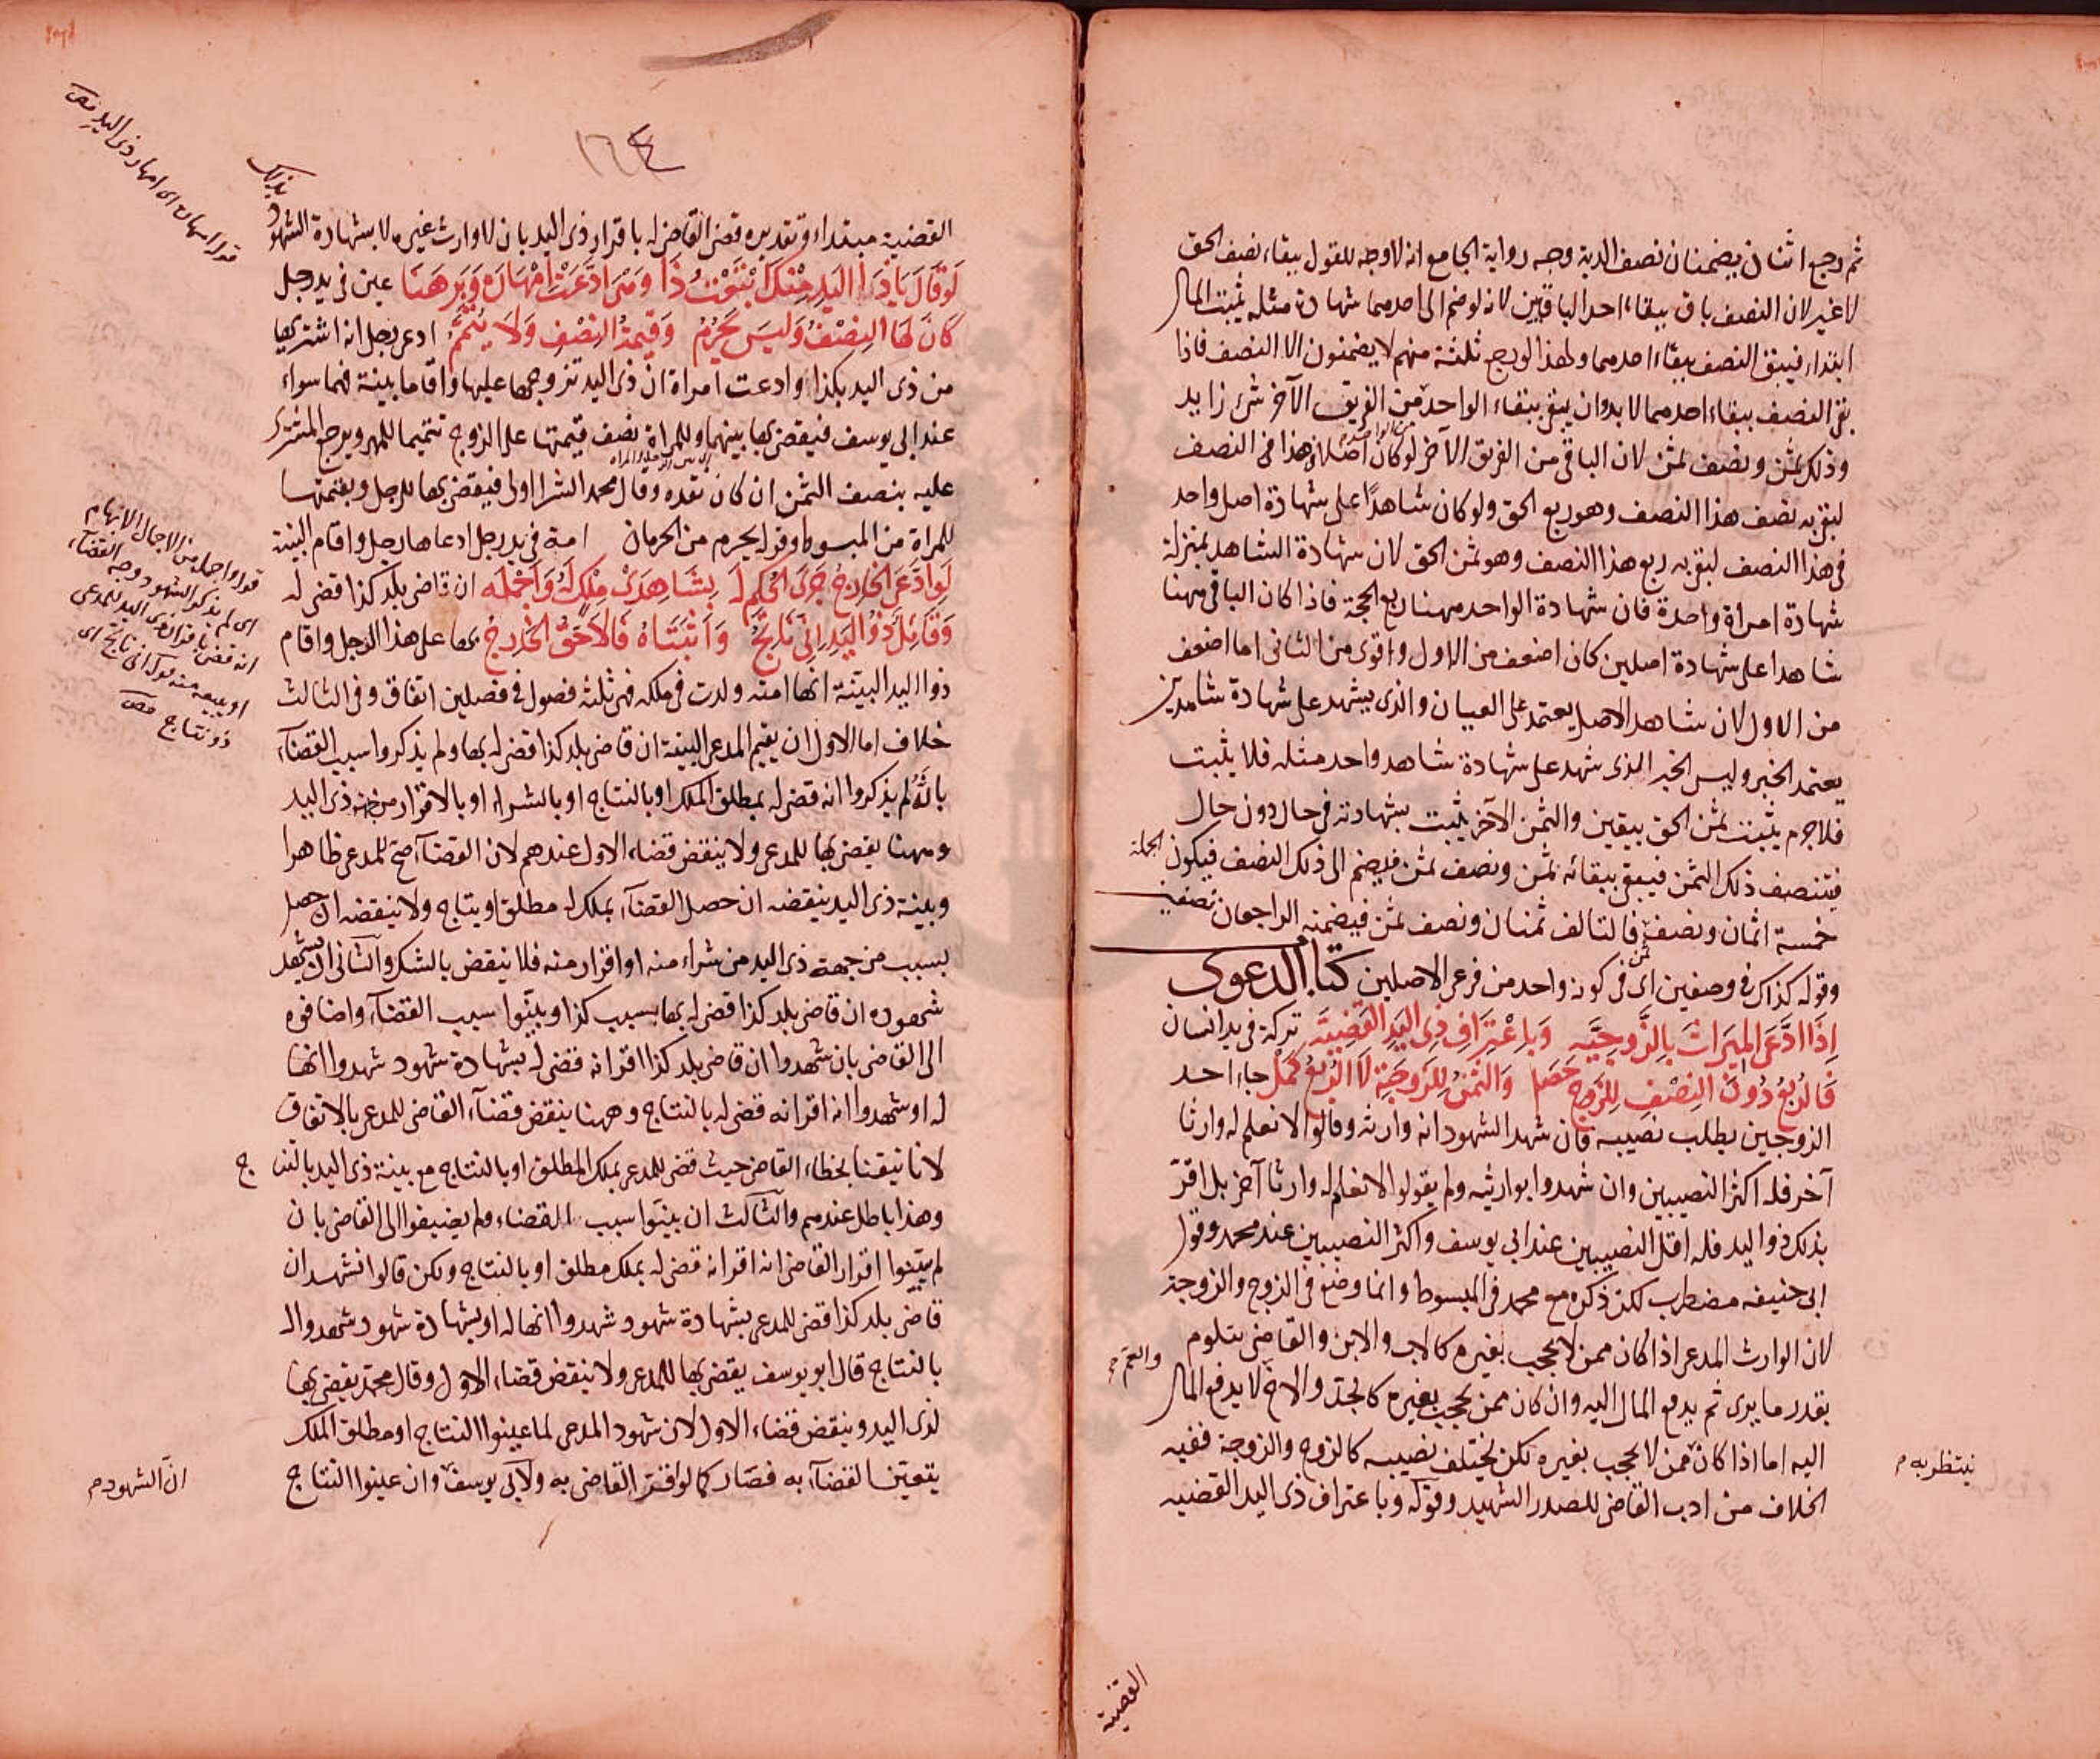 ثم رجع اثنان يضمنان نصف الدية وجه رواية الجامع انه لا وجه للقول ببقاء نصف الحق
لا غير لان النصف باق ببقاء احد الباقيين لانه لو ضم الى احدهما شهادة مثله يثبت المال
ابتداء فيبقى النصف ببقاء احدهما ولهذا لو رجع ثلثة منهم لا يضمنون الا النصف فاذا
بقى النصف ببقاء احدهما لا بد وان يبقى ببقاء الواحد من الفريق الآخر شئ زايد
وذلك ثمن ونصف ثمن لان الباقى من الفريق الآخر لو كان اصلا وهذا فى النصف
لبقى به نصف هذا النصف وهو ربع الحق ولو كان شاهدا على شهادة اصل واحد
فى هذا النصف لبقى به ربع هذا النصف وهو ثمن الحق لان شهادة الشاهد بمنزلة
شهادة امراة واحدة فان شهادة الواحد مهنا ربع الحجة فاذا كان الباقى مهنا
شاهدا على شهادة اصلين كان اضعف من الاول واقوى من الثانى اما اضعف
من الاول لان شاهد الاصل يعتمد على العيان والذى يشهد على شهادة شاهدين
يعتمد الخبر وليس الخبر الذى شهد على شهادة شاهد واحد مثله فلا يثبت
فلا جرم يثبت ثمن الحق بيقين والثمن الآخر يثبت بشهادته فى حال دون حال
فيتنصف ذلك الثمن فيبقى ببقائه ثمن ونصف ثمن فيضم الى ذلك النصف فيكون الجملة
خمسة اثمان ونصف ثمن فالتالف ثمنان ونصف ثمن فيضمنه الراجعان نصفين
وقوله كذاك فى وصفين اى فى كونه واحد من فرعى الاصلين كتاب الدعوى
اذا ادعى الميراث بالزوجيه وباعتراف ذى اليد القضية تركة فى يد انسان
فالربع دون النصف للزوج حصل والثمن للزوجة لا الربع كمل جاء احد
الزوجين يطلب نصيبه فان شهد الشهود انه وارثه وقالوا لا نعلم له وارثا
آخر فله اكثر النصيبين وان شهدوا بوارثيه ولم يقولوا لا نعلم له وارثا آخر بل اقر
بذلك ذو اليد فله اقل النصيبين عند ابى يوسف واكثر النصيبين عند محمد وقول
ابى حنيفه مضطرب لكن ذكره مع محمد فى المبسوط وانما وضع فى الزوج والزوجة
لان الوارث المدعى اذا كان ممن لا يحجب بغيره كالاب والابن والقاضى يتلوم
بقدر ما يرى ثم يدفع المال اليه وان كان ممن يحجب بغيره كالجد والاخ لا يدفع المال
والعم م
اليه اما اذا كان ممن لا يحجب بغيره لكن يختلف نصيبه كالزوج والزوجة ففيه
ينتظر به م
الخلاف من ادب القاضى للصدر الشهيد وقوله وباعتراف ذى اليد القضيه
القضية
١٦٤
القضية مبتداء وتقديره قضى القاضى له باقرار ذى اليد بان لا وارث غيره لا بشهادة الشهود
بذلك
لو قال يا ذا اليد منك ابتعت ذا ومتى ادعت امهاره وبرهنا عين فى يد رجل
كان لها النصف وليس يحرم وقيمة النصف ولا يتمم ادعى رجل انه اشتريها
من ذى اليد بكذا وادعت امراة ان ذى اليد تزوجها عليها واقاما بينة فهما سواء
عند ابى يوسف فيقضى بها بينهما وللمراة نصف قيمتها على الزوج تتميما للمهر ويرجع المشترى
عليه بنصف الثمن ان كان نقده وقال محمد الشرا اولى فيقضى بها للرجل وبقيمتها
للمراة من المبسوط وقوله يحرم من الحرمان امة فى يد رجل ادعاها رجل واقام البينة
لو ادعى الخارج جرى الحكم له بشاهدى ملك له واجمله ان قاضى بلد كذا قضى له
وقائل ذو اليد انى ناتج واثبتاه فالاحق الخارج بها على هذا الرجل واقام
ذو اليد البينة انها امته ولدت فى ملكه فهى ثلثه فصول فى فصلين اتفاق وفى الثالث
خلاف اما الاول ان يقيم المدعى البينة ان قاضى بلد كذا قضى له بها ولم يذكروا سبب القضآء
بان لم يذكروا انه قضى له بمطلق الملك او بالنتاج او بالشراء او بالاقرار من جهة ذى اليد
ومهنا يقضى بها للمدعى ولا ينقض قضاء الاول عندهم لان القضآء صح للمدعى ظاهرا
وبينة ذى اليد ينقضه ان حصل القضآء بملك له مطلق او بنتاج ولا ينقضه ان حصل
بسبب من جهة ذى اليد من شراء منه او اقرار منه فلا ينقض بالشك والثانى ان يشهد
شهوده ان قاضى بلد كذا قضى له بها بسبب كذا وبينوا سبب القضآء واضافوه
الى القاضى بان شهدوا ان قاضى بلد كذا اقر انه قضى له بشهادة شهود شهدوا انها
له او شهدوا انه اقر انه قضى له بالنتاج وههنا ينقض قضآء القاضى للمدعى بالاتفاق
لانا تيقنا بخطاء القاضى حيث قضى للمدعى بملك المطلق او بالنتاج مع بينة ذى اليد بالنتاج
وهذا باطل عندهم والثالث ان بينوا سبب القضاء ولم يضيفوا الى القاضى بان
لم يبينوا اقرار القاضى انه اقر انه قضى له بملك مطلق او بالنتاج ولكن قالوا نشهد ان
قاضى بلد كذا قضى للمدعى بشهادة شهود شهدوا انها له او بشهادة شهود شهدوا له
بالنتاج قال ابو يوسف يقضى بها للمدعى ولا ينقض قضاء الاول وقال محمد يقضى بها
لذى اليد وينقض قضاء الاول لان شهود المدعى لما عينوا النتاج او مطلق الملك
يتعين القضآء به فصار كما لو اقر القاضى به ولابى يوسف وان عينوا النتاج
ان الشهود م
قوله امهاره اى امهار ذى اليد
قوله واجمله من الاجمال الابهام
اى لم يذكر الشهود وجه القضآء
انه قضى باقرار ذى اليد للمدعى
او ببيعه منه قوله انى ناتج اى
ذو نتاج